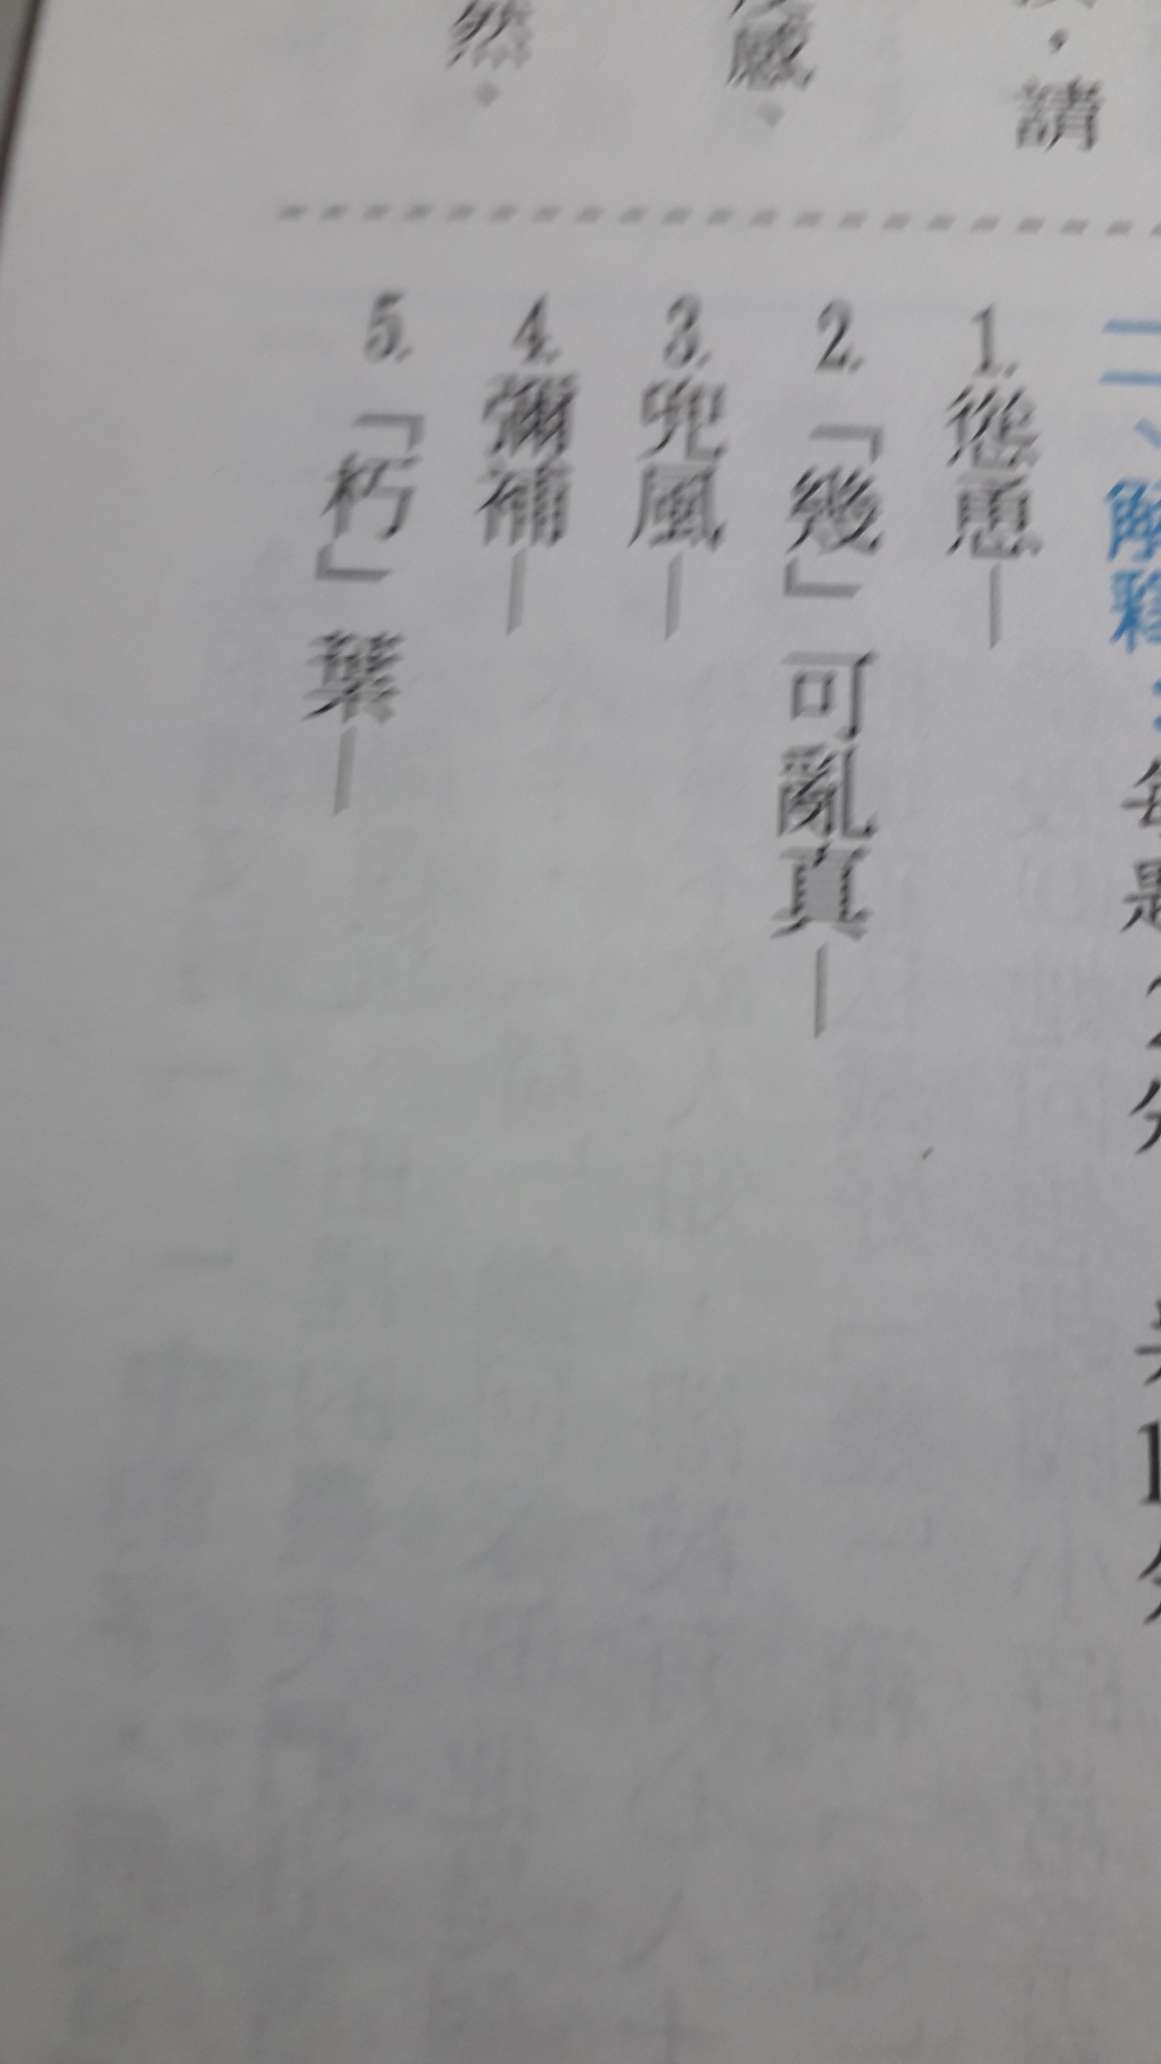 ，請
感。
然。
二、解釋：每題2分 共1
1.慫恿—
2.「幾」可亂真—
3.兜風—
4.彌補—
5.「朽」葉—